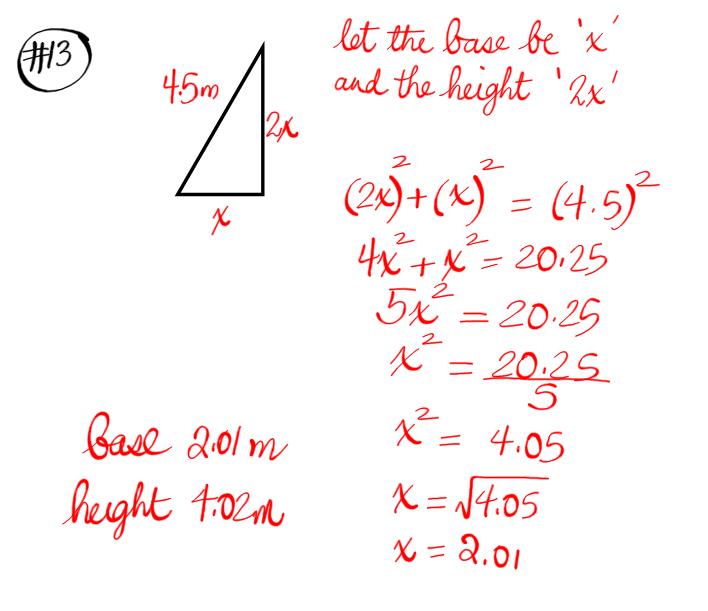 #13
let the base be 'x'
and the height '2x'
4.5m
2x
x
(2x)² + (x)² = (4.5)²
4x² + x² = 20.25
5x² = 20.25
x² = 20.25/5
x² = 4.05
x = √4.05
x = 2.01
base 2.01 m
height 4.02m